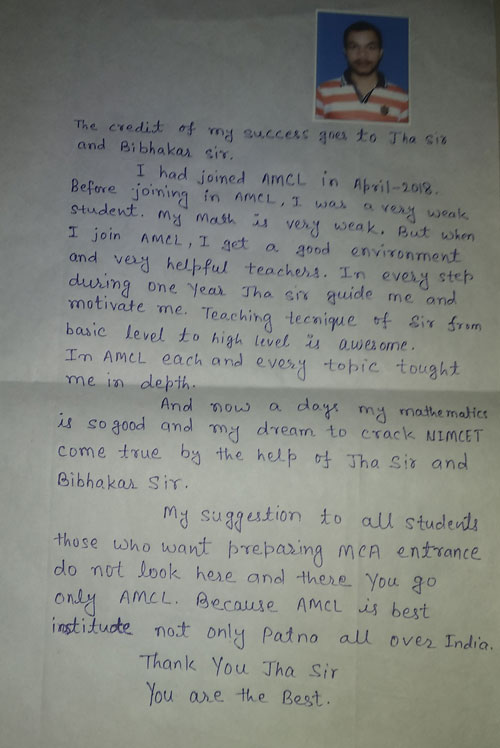 The credit of my success goes to Jha Sir
and Bibhakar Sir.
I had joined AMCL in April-2018.
Before joining in AMCL, I was a very weak
student. My Math is very weak. But when
I join AMCL, I get a good environment
and very helpful teachers. In every step
during one Year Jha sir guide me and
motivate me. Teaching tecnique of Sir from
basic level to high level is awesome.
In AMCL each and every topic tought
me in depth.
And now a days my mathematics
is so good and my dream to crack NIMCET
come true by the help of Jha Sir and
Bibhakar Sir.
My suggestion to all students
those who want preparing MCA entrance
do not look here and there You go
only AMCL. Because AMCL is best
institude not only Patna all over India.
Thank You Jha Sir
You are the Best.